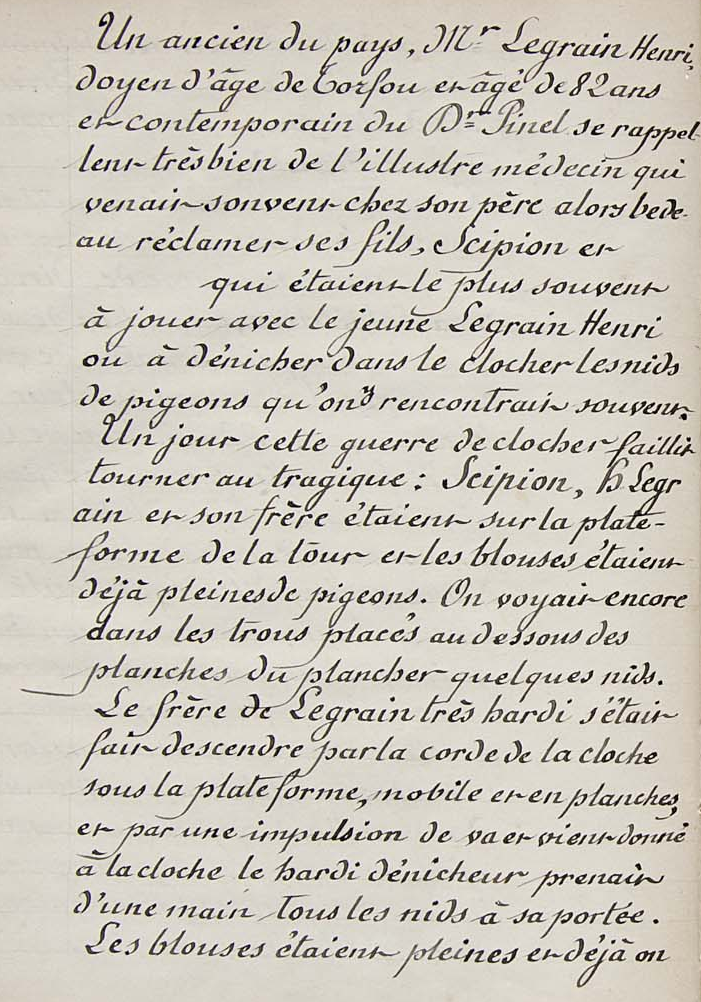 Un ancien du pays, Mr Legrain Henri,
doyen d'âge de Torfou et âgé de 82 ans
et contemporain du Dr Pinel se rappel-
lent très bien de l'illustre médecin qui
venait souvent chez son père alors bede-
au réclamer ses fils, Scipion et
qui étaient le plus souvent
à jouer avec le jeune Legrain Henri
ou à dénicher dans le clocher les nids
de pigeons qu'on y rencontrait souvent.
Un jour cette guerre de clocher faillit
tourner au tragique : Scipion, h Legr
ain et son frère étaient sur la plate-
forme de la tour et les blouses étaient
déjà pleines de pigeons. On voyait encore
dans les trous placés au dessous des
planches du plancher quelques nids.
Le frère de Legrain très hardi s'était
fait descendre par la corde de la cloche
sous la plateforme, mobile et en planches,
et par une impulsion de va et vient donné
à la cloche le hardi dénicheur prenait
d'une main tous les nids à sa portée.
Les blouses étaient pleines et déjà on